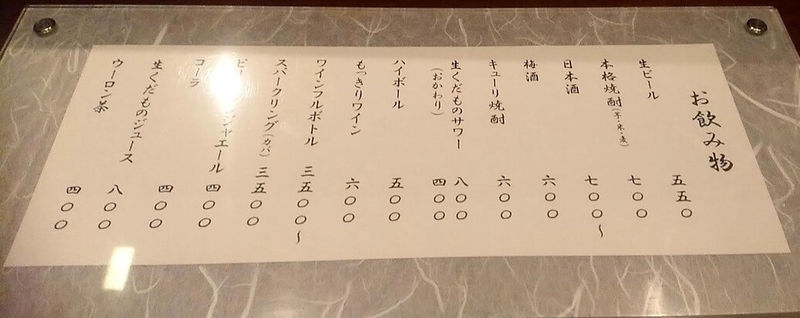 お飲み物
生ビール 五五〇
本格焼酎(芋・米・麦) 七〇〇
日本酒 七〇〇~
梅酒 六〇〇
キューリ焼酎 六〇〇
生くだものサワー 八〇〇
(おかわり) 四〇〇
ハイボール 五〇〇
もっきりワイン 六〇〇
ワインフルボトル 三五〇〇~
スパークリング(カバ) 三五〇〇
ジンジャエール 四〇〇
コーラ 四〇〇
生くだものジュース 八〇〇
ウーロン茶 四〇〇